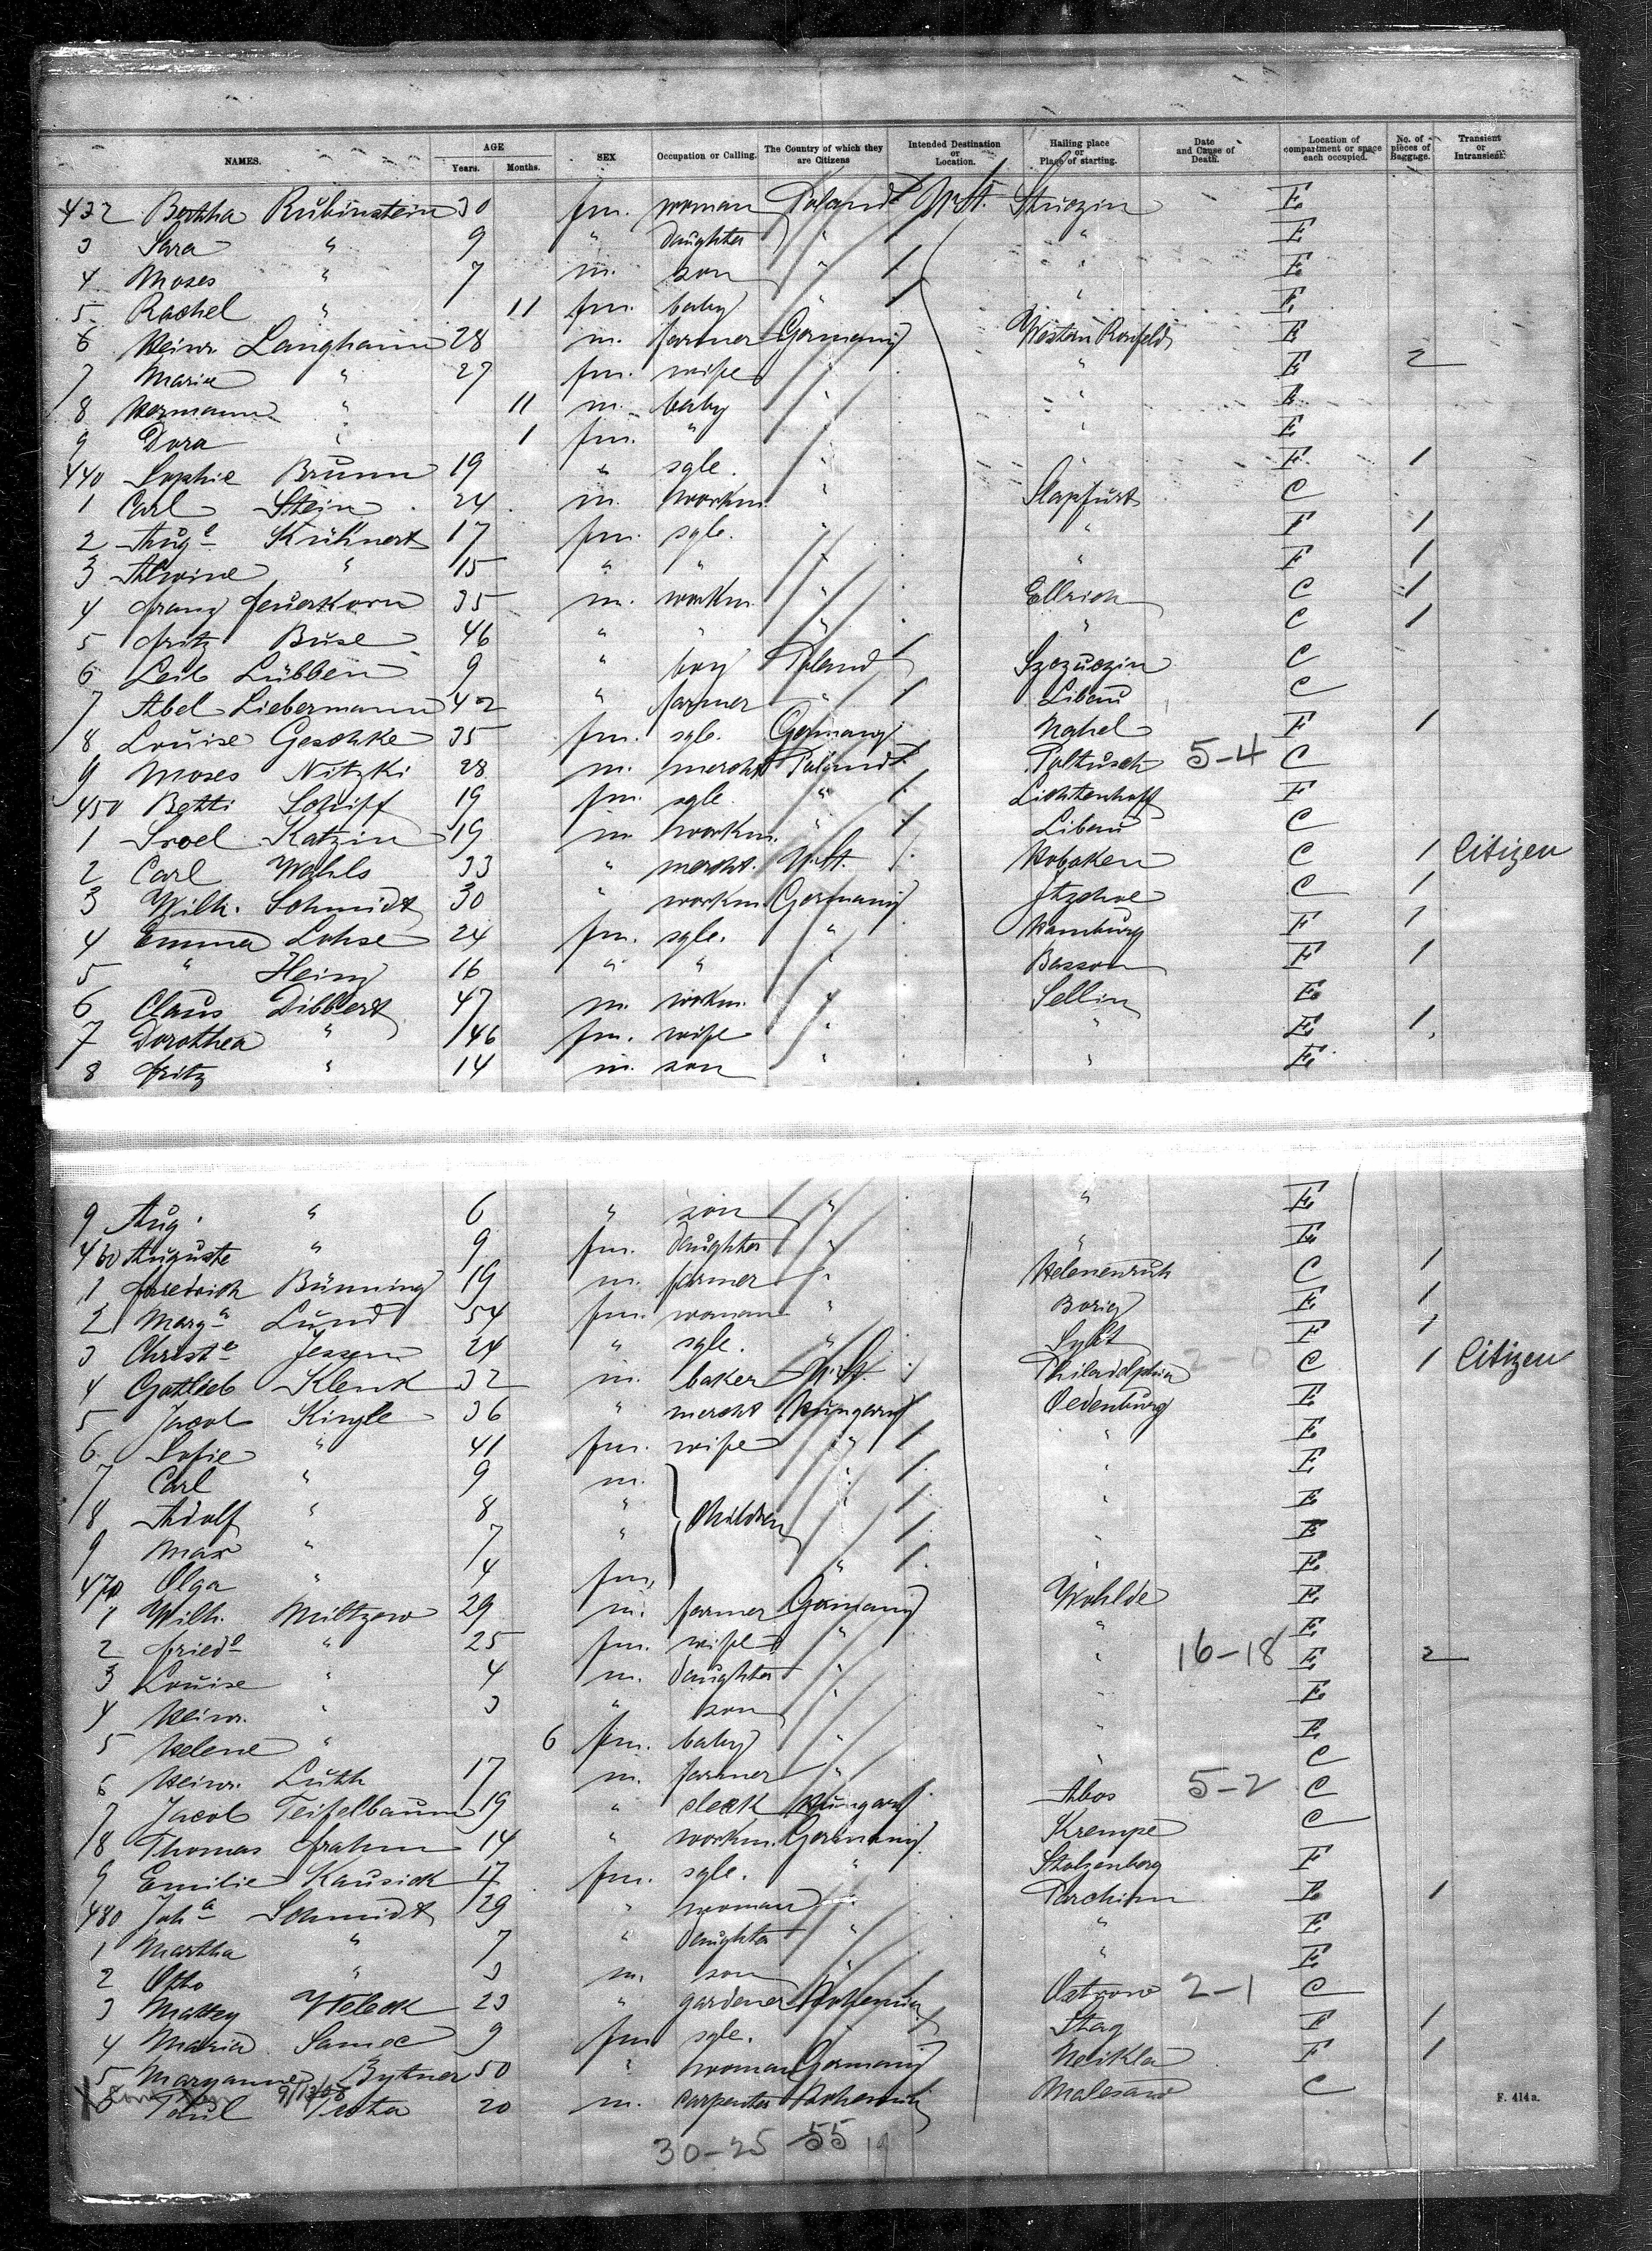 NAMES. AGE Years. Months. SEX Occupation or Calling. The Country of which they are Citizens Intended Destination or Location. Hailing place or Place of starting. Date and Cause of Death. Location of compartment or space each occupied. No. of pieces of Baggage. Transient or Intransient.
432 Bertha Rubinstein 30 fm. woman Poland U. St. Stuczin E
3 Sara " 9 " daughter " " E
4 Moses " 7 m. son " " E
5 Rachel " 11 fm. baby " " E
6 Heinr. Langhein 28 m. farmer Germany E
7 Maria " 27 fm. wife " " E 2
8 Hermann " 11 m. baby " " E
9 Dora " 1 fm. " " " E
440 Sophie Brunn 19 " sgle. " F 1
1 Carl Stein 24 m. workm. " C
2 Auge Kühnert 17 fm. sgle. " " F 1
3 Alwine " 15 " " " " F 1
4 Franz Feuerkorn 35 m. workm. " Ellrich C 1
5 Fritz Buse 46 " " " " C 1
6 Leib Lübben 9 " boy Poland Szczuczin C
7 Abel Liebermann 42 " farmer " Libau C
8 Louise Geschke 35 fm. sgle. Germany Nahel F 1
9 Moses Nitzki 28 m. mercht Poland Poltusch 5-4 C
450 Betti Schiff 19 fm. sgle. " Lichtenhoff F
1 Sroel Katzin 19 m. workm. " Libau C
2 Carl Wahls 33 " mercht. U. St. Hoboken C 1 Citizen
3 Wilh. Schmidt 30 " workm. Germany Itzehoe C 1
4 Emma Lohse 24 fm. sgle. " Hamburg F 1
5 " Heinz 16 " " " Basson F 1
6 Claus Dibbert 47 m. workm. " Sellin E
7 Dorothea " 46 fm. wife " " E 1
8 Fritz " 14 m. son " " E
9 Aug. " 6 " son " " E
460 Auguste " 9 fm. daughter " " E
1 Friedrich Bünning 19 m. farmer " Helenenruh C 1
2 Marga Lund 54 fm. woman " Borig E 1
3 Christe Jessen 24 " sgle. " Sylt F 1
4 Gottlieb Klenk 32 m. baker U. St. Philadelphia C 1 Citizen
5 Jacob Kingle 36 " mercht Hungary Oedenburg E
6 Sofie " 41 fm. wife " " E
7 Carl " 9 m. " " E
8 Adolf " 8 " children " " E
9 Max " 7 " " E
470 Olga " 4 fm. " " E
1 Wilh. Miltzow 29 m. farmer Germany Wohlde E
2 Friede " 25 fm. wife " " E
3 Louise " 4 m. daughter " " 16-18 E 2
4 Heinr. " 3 " son " E
5 Helene " 6 fm. baby " " E
6 Heinr. Luth 17 m. farmer " " C
7 Jacob Teifelbaum 19 " clerk Hungary Abos 5-2 C
8 Thomas Frahm 14 " workm. Germany Krempe C
9 Emilie Kausick 17 fm. sgle. " Stolzenberg F
480 Joha Schmidt 29 " woman " Parchim E 1
1 Martha " 7 " daughter " " E
2 Otto " 3 m. son " " E
3 Mattey Weleck 23 " gardener Bohemia Ostrow 2-1 C
4 Maria Samec 9 fm sgle. " Stag F 1
5 Maryanne Bytner 50 " woman Germany Neikla F 1
6 Paul 9/12/08 20 m. carpenter Bohemia Malesau C
F. 414 a.
30-25 55